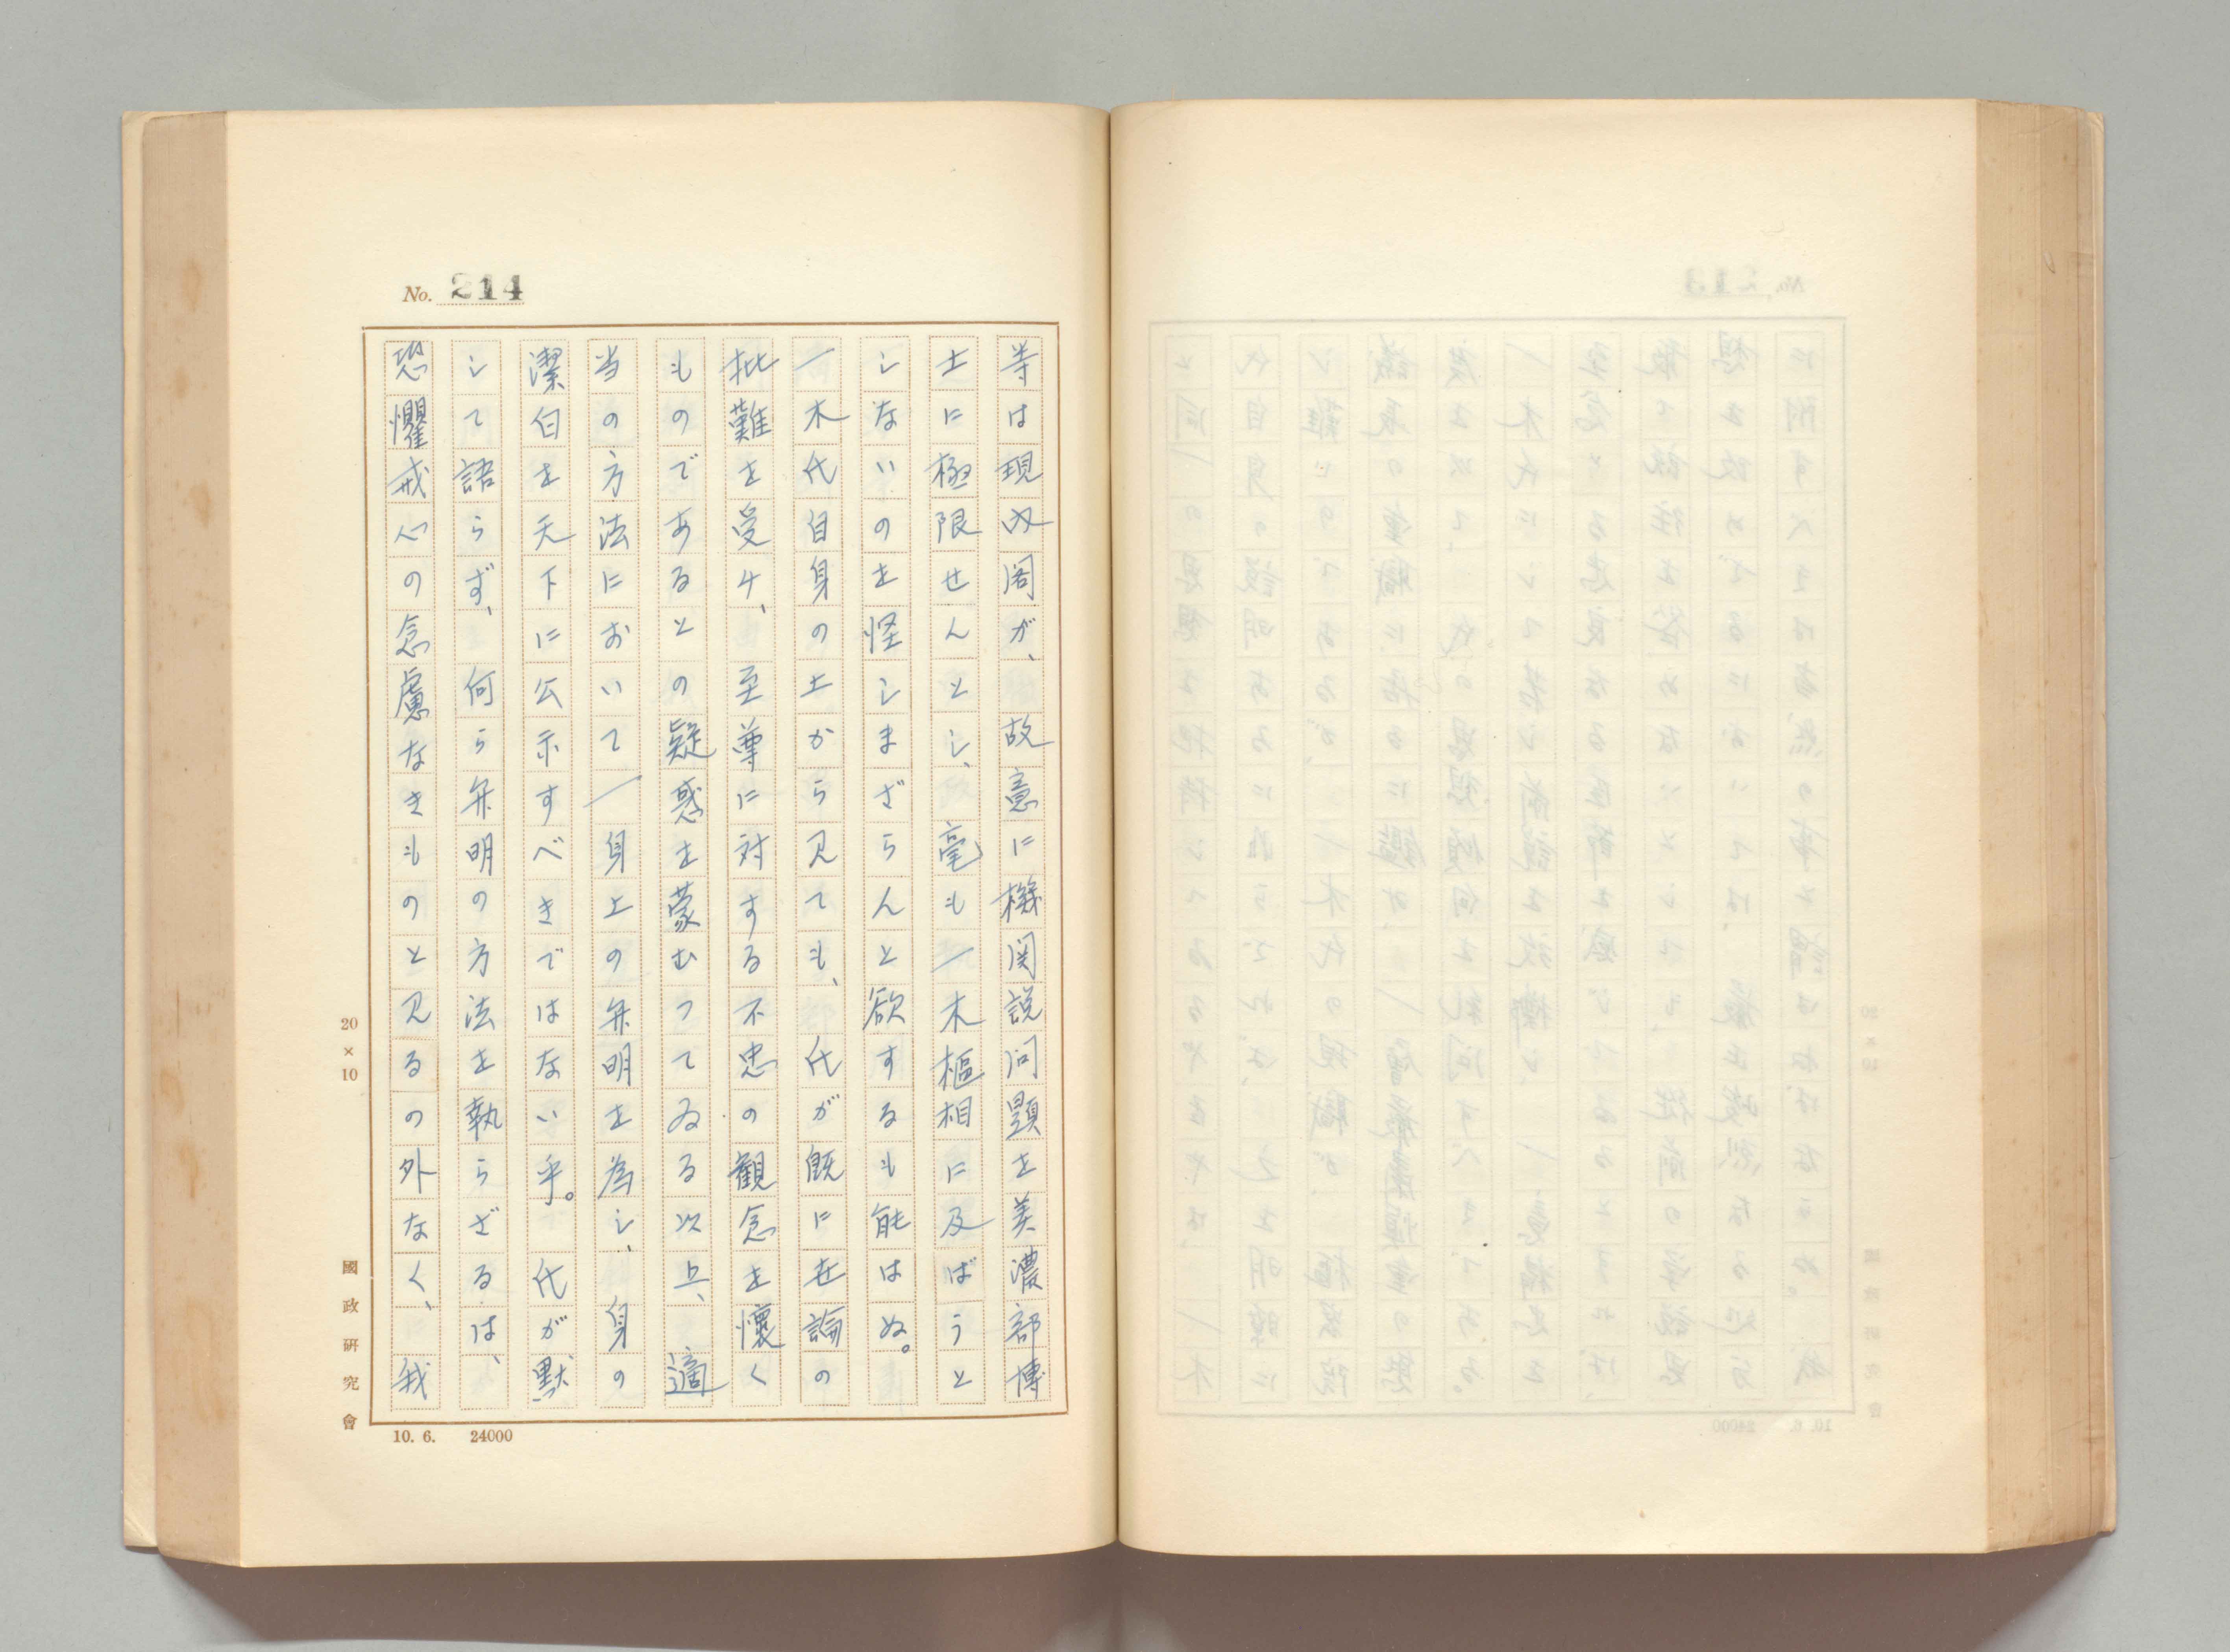 No. 214
等は現内閣が、故意に機関説問題を美濃部博
士に極限せんとし、毫も一木枢相に及ばうと
しないのを怪しまざらんと欲するも能はぬ。
一木氏自身の上から見ても、氏が既に世論の
批難を受け、至尊に対する不忠の観念を懐く
ものであるとの疑惑を蒙むつてゐる以上、適
当の方法において一身上の弁明を為し、身の
潔白を天下に公示すべきではない乎。氏が黙
して語らず、何ら弁明の方法を執らざるは、
恐懼戒心の念慮なきものと見るの外なく、我
20×10
國政研究會
10. 6. 24000